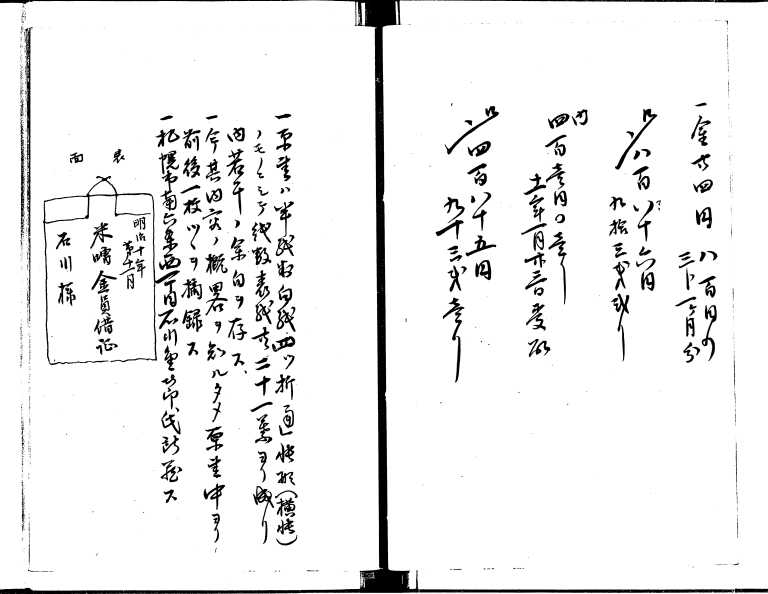 一金廿四円 八百円ノ
三ト一ヶ月分
〆八百八十六円
九拾三戋弐リ
内
四百壱円〇壱リ
十一年一月廿三日受取
〆四百八十五円
九十三戋壱リ
一原書ハ半紙判白紙四ツ折通帳形(横帳)
ノモノニシテ紙数表紙共二十一葉ヨリ成リ
内若干ノ余白ヲ存ス、
一今其内容ノ概畧ヲ知ルタメ原書中ヨリ
前後一枚ツヽヲ摘録ス
一札幌市南六条西一丁目石川
氏所蔵ス
表面
明治十年
第十一月
米噌金員借証
石川様